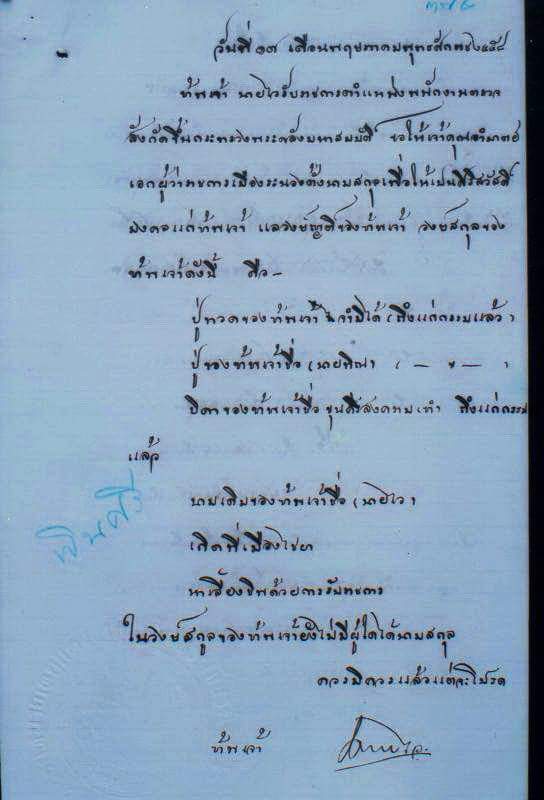 วันที่ ๑๗ เดือนพฤษภาคมพุทธศักราช ๒๔๕๘
ข้าพเจ้า นายไวรับราชการตำแหน่งพนักงานตรวจ
สังกัดขึ้นกระทรวงพระคลังมหาสมบัติ ขอให้เจ้าคุณอำมาตย์
เอกผู้ว่าราชการเมืองระนองตั้งนามสกุลเพื่อให้เป็นศิริสวัสดิ์
มงคลแก่ข้าพเจ้า แลวงษ์ญาติของข้าพเจ้า วงษ์สกุลของ
ข้าพเจ้าดังนี้ คือ –
ปู่ทวดของข้าพเจ้า จำมิได้ (ถึงแก่กรรมแล้ว)
ปู่ของข้าพเจ้าชื่อ (นายทิณ) ( – ฯ – )
บิดาของข้าพเจ้าชื่อ ขุนศรีสงคราม (ทำ) ถึงแก่กรรม
แล้ว
นามเดิมของข้าพเจ้าชื่อ (นายไว)
เกิดที่เมืองไชยา
หาเลี้ยงชีพด้วยการรับราชการ
ในวงษ์สกุลของข้าพเจ้ายังไม่มีผู้ใดได้นามสกุล
ควรมิควรแล้วแต่จะโปรด
ข้าพเจ้า